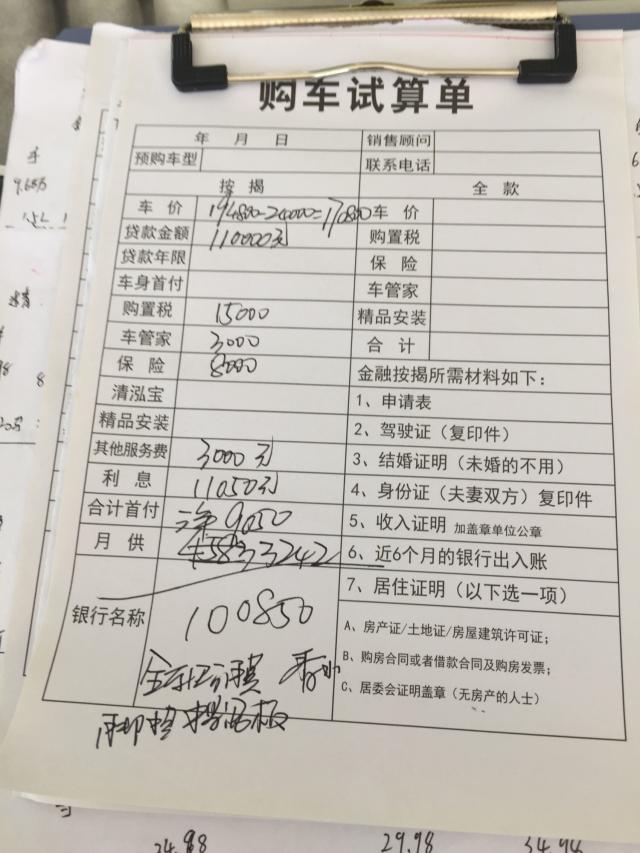 购车试算单
年 月 日 销售顾问
预购车型 联系电话
按揭 全款
车价 194800-24000=170800 车价
贷款金额 110000元 购置税
贷款年限 保险
车身首付 车管家
购置税 15000 精品安装
车管家 3000 合计
保险 8000
金融按揭所需材料如下：
清泓宝
1、申请表
精品安装
2、驾驶证（复印件）
其他服务费 3000元
3、结婚证明（未婚的不用）
利息 11050元
4、身份证（夫妻双方）复印件
合计首付 9050
5、收入证明 加盖章单位公章
月供 3242
6、近6个月的银行出入账
7、居住证明（以下选一项）
银行名称 100850
A、房产证/土地证/房屋建筑许可证；
B、购房合同或者借款合同及购房发票；
C、居委会证明盖章（无房产的人士）
24.98 29.98 34.94